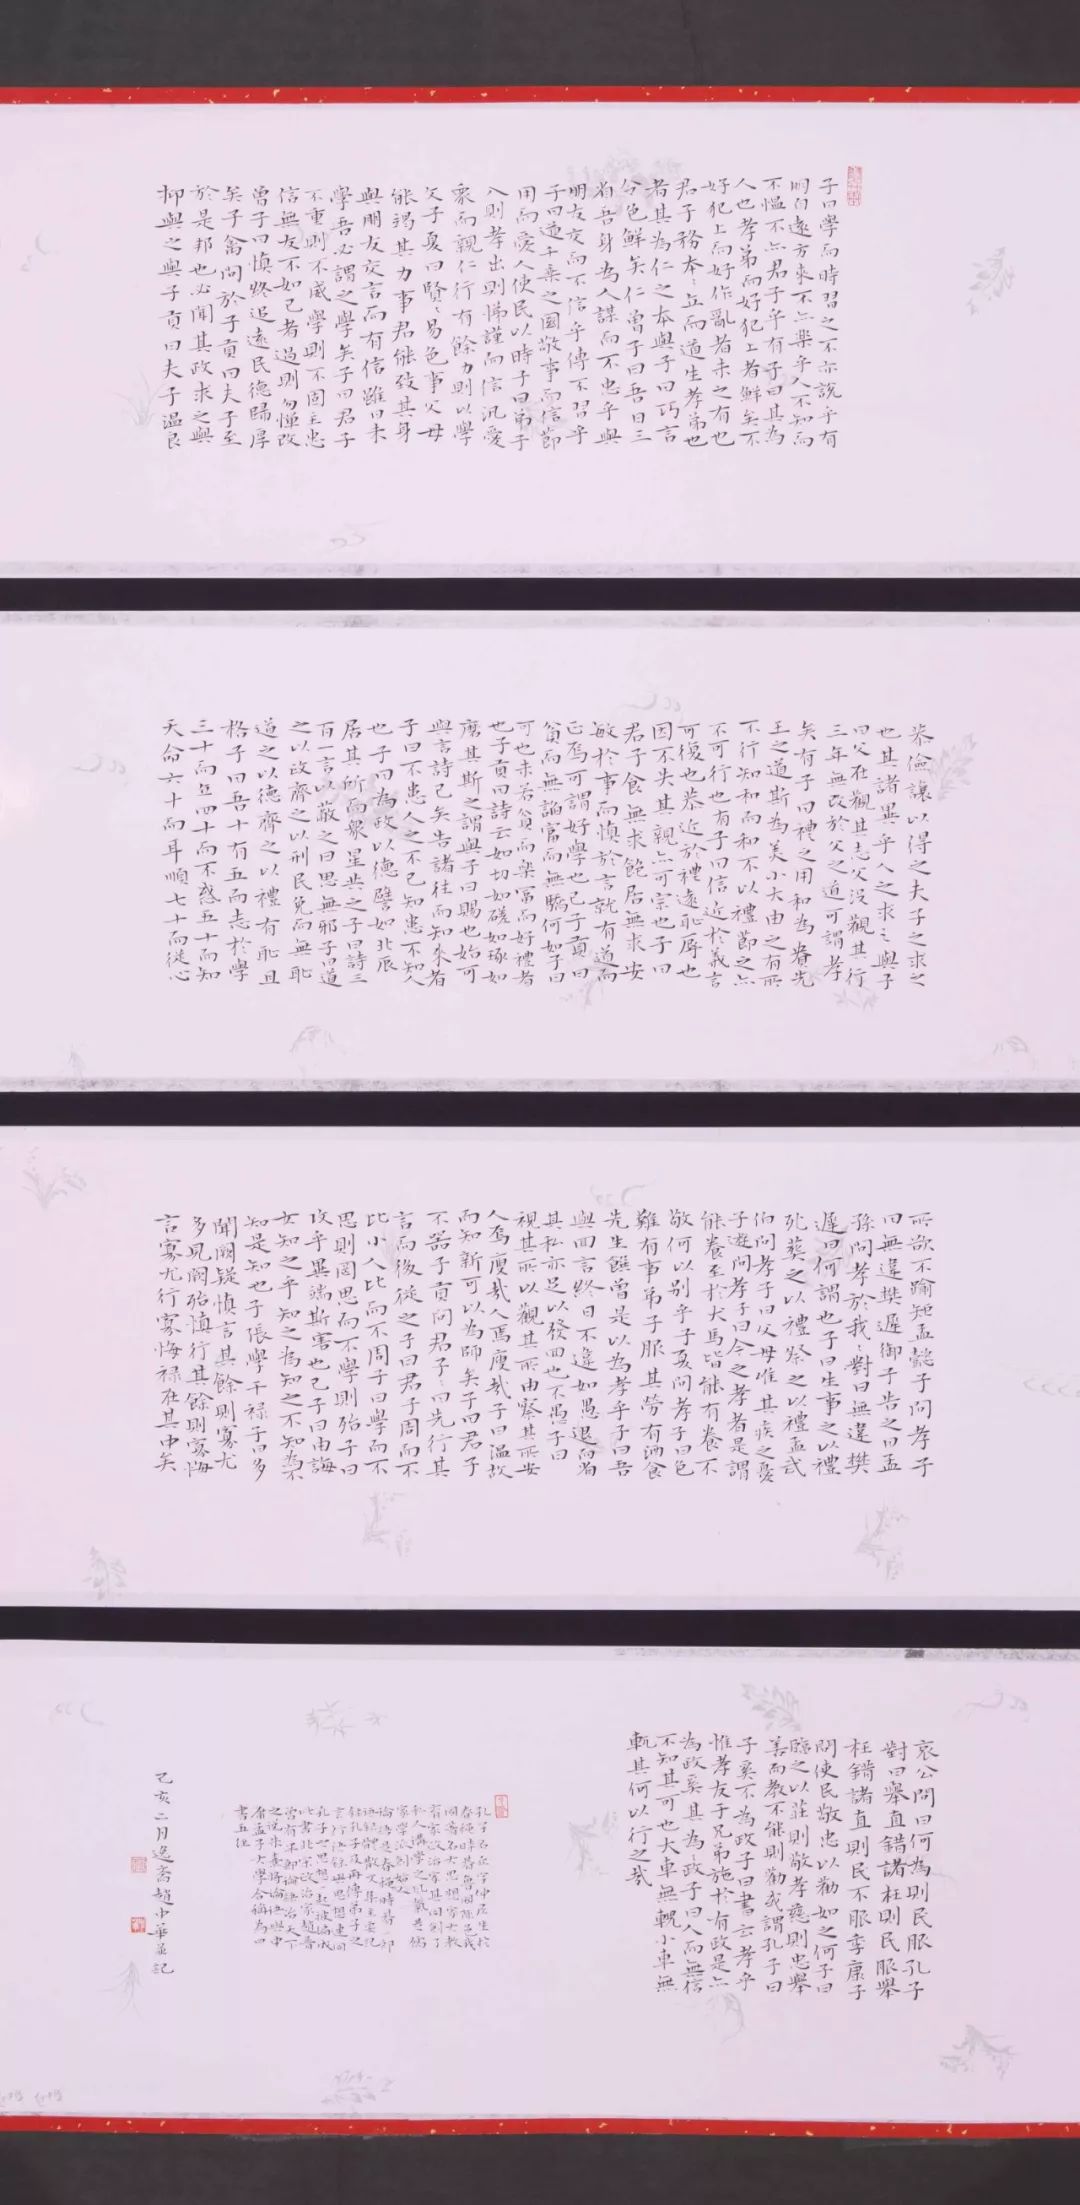 子曰學而時習之不亦說乎有
朋自遠方來不亦樂乎人不知而
不慍不亦君子乎有子曰其為
人也孝弟而好犯上者鮮矣不
好犯上而好作亂者未之有也
君子務本〻立而道生孝弟也
者其為仁之本與子曰巧言
令色鮮矣仁曾子曰吾日三
省吾身為人謀而不忠乎與
朋友交而不信乎傳不習乎
子曰道千乘之國敬事而信節
用而愛人使民以時子曰弟子
入則孝出則悌謹而信汎愛
衆而親仁行有餘力則以學
文子夏曰賢〻易色事父母
能竭其力事君能致其身
與朋友交言而有信雖曰未
學吾必謂之學矣子曰君子
不重則不威學則不固主忠
信無友不如己者過則勿憚改
曾子曰慎終追遠民德歸厚
矣子禽問於子貢曰夫子至
於是邦也必聞其政求之與
抑與之與子貢曰夫子溫良
恭儉讓以得之夫子之求之
也其諸異乎人之求之與子
曰父在觀其志父沒觀其行
三年無改於父之道可謂孝
矣有子曰禮之用和為貴先
王之道斯為美小大由之有所
不行知和而和不以禮節之亦
不可行也有子曰信近於義言
可復也恭近於禮遠恥辱也
因不失其親亦可宗也子曰
君子食無求飽居無求安
敏於事而慎於言就有道而
正焉可謂好學也已子貢曰
貧而無諂富而無驕何如子曰
可也未若貧而樂富而好禮者
也子貢曰詩云如切如磋如琢如
磨其斯之謂與子曰賜也始可
與言詩已矣告諸往而知來者
子曰不患人之不己知患不知人
也子曰為政以德譬如北辰
居其所而衆星共之子曰詩三
百一言以蔽之曰思無邪子曰道
之以政齊之以刑民免而無恥
道之以德齊之以禮有恥且
格子曰吾十有五而志於學
三十而立四十而不惑五十而知
天命六十而耳順七十而從心
所欲不踰矩孟懿子問孝子
曰無違樊遲御子告之曰孟
孫問孝於我〻對曰無違樊
遲曰何謂也子曰生事之以禮
死葬之以禮祭之以禮孟武
伯問孝子曰父母唯其疾之憂
子遊問孝子曰今之孝者是謂
能養至於犬馬皆能有養不
敬何以別乎子夏問孝子曰色
難有事弟子服其勞有酒食
先生饌曾是以為孝乎子曰吾
與回言終日不違如愚退而省
其私亦足以發回也不愚子曰
視其所以觀其所由察其所安
人焉廋哉人焉廋哉子曰溫故
而知新可以為師矣子曰君子
不器子貢問君子〻曰先行其
言而後從之子曰君子周而不
比小人比而不周子曰學而不
思則罔思而不學則殆子曰
攻乎異端斯害也已子曰由誨
女知之乎知之為知之不知為不
知是知也子張學干祿子曰多
聞闕疑慎言其餘則寡尤
多見闕殆慎行其餘則寡悔
言寡尤行寡悔祿在其中矣
哀公問曰何為則民服孔子
對曰舉直錯諸枉則民服舉
枉錯諸直則民不服季康子
問使民敬忠以勸如之何子曰
臨之以莊則敬孝慈則忠舉
善而教不能則勸或謂孔子曰
子奚不為政子曰書云孝乎
惟孝友于兄弟施於有政是亦
為政奚其為〻政子曰人而無信
不知其可也大車無輗小車無
軏其何以行之哉
孔子名丘字仲尼生於
春秋時
學派創始人
論語是春秋時
孔子及再傳弟子之
孔子思想
此書北宋政治家趙普
曾有半部論語治天下
之說朱熹將論語與中
庸孟子大學合稱為四
書五經
己亥二月逸齋趙中華並記